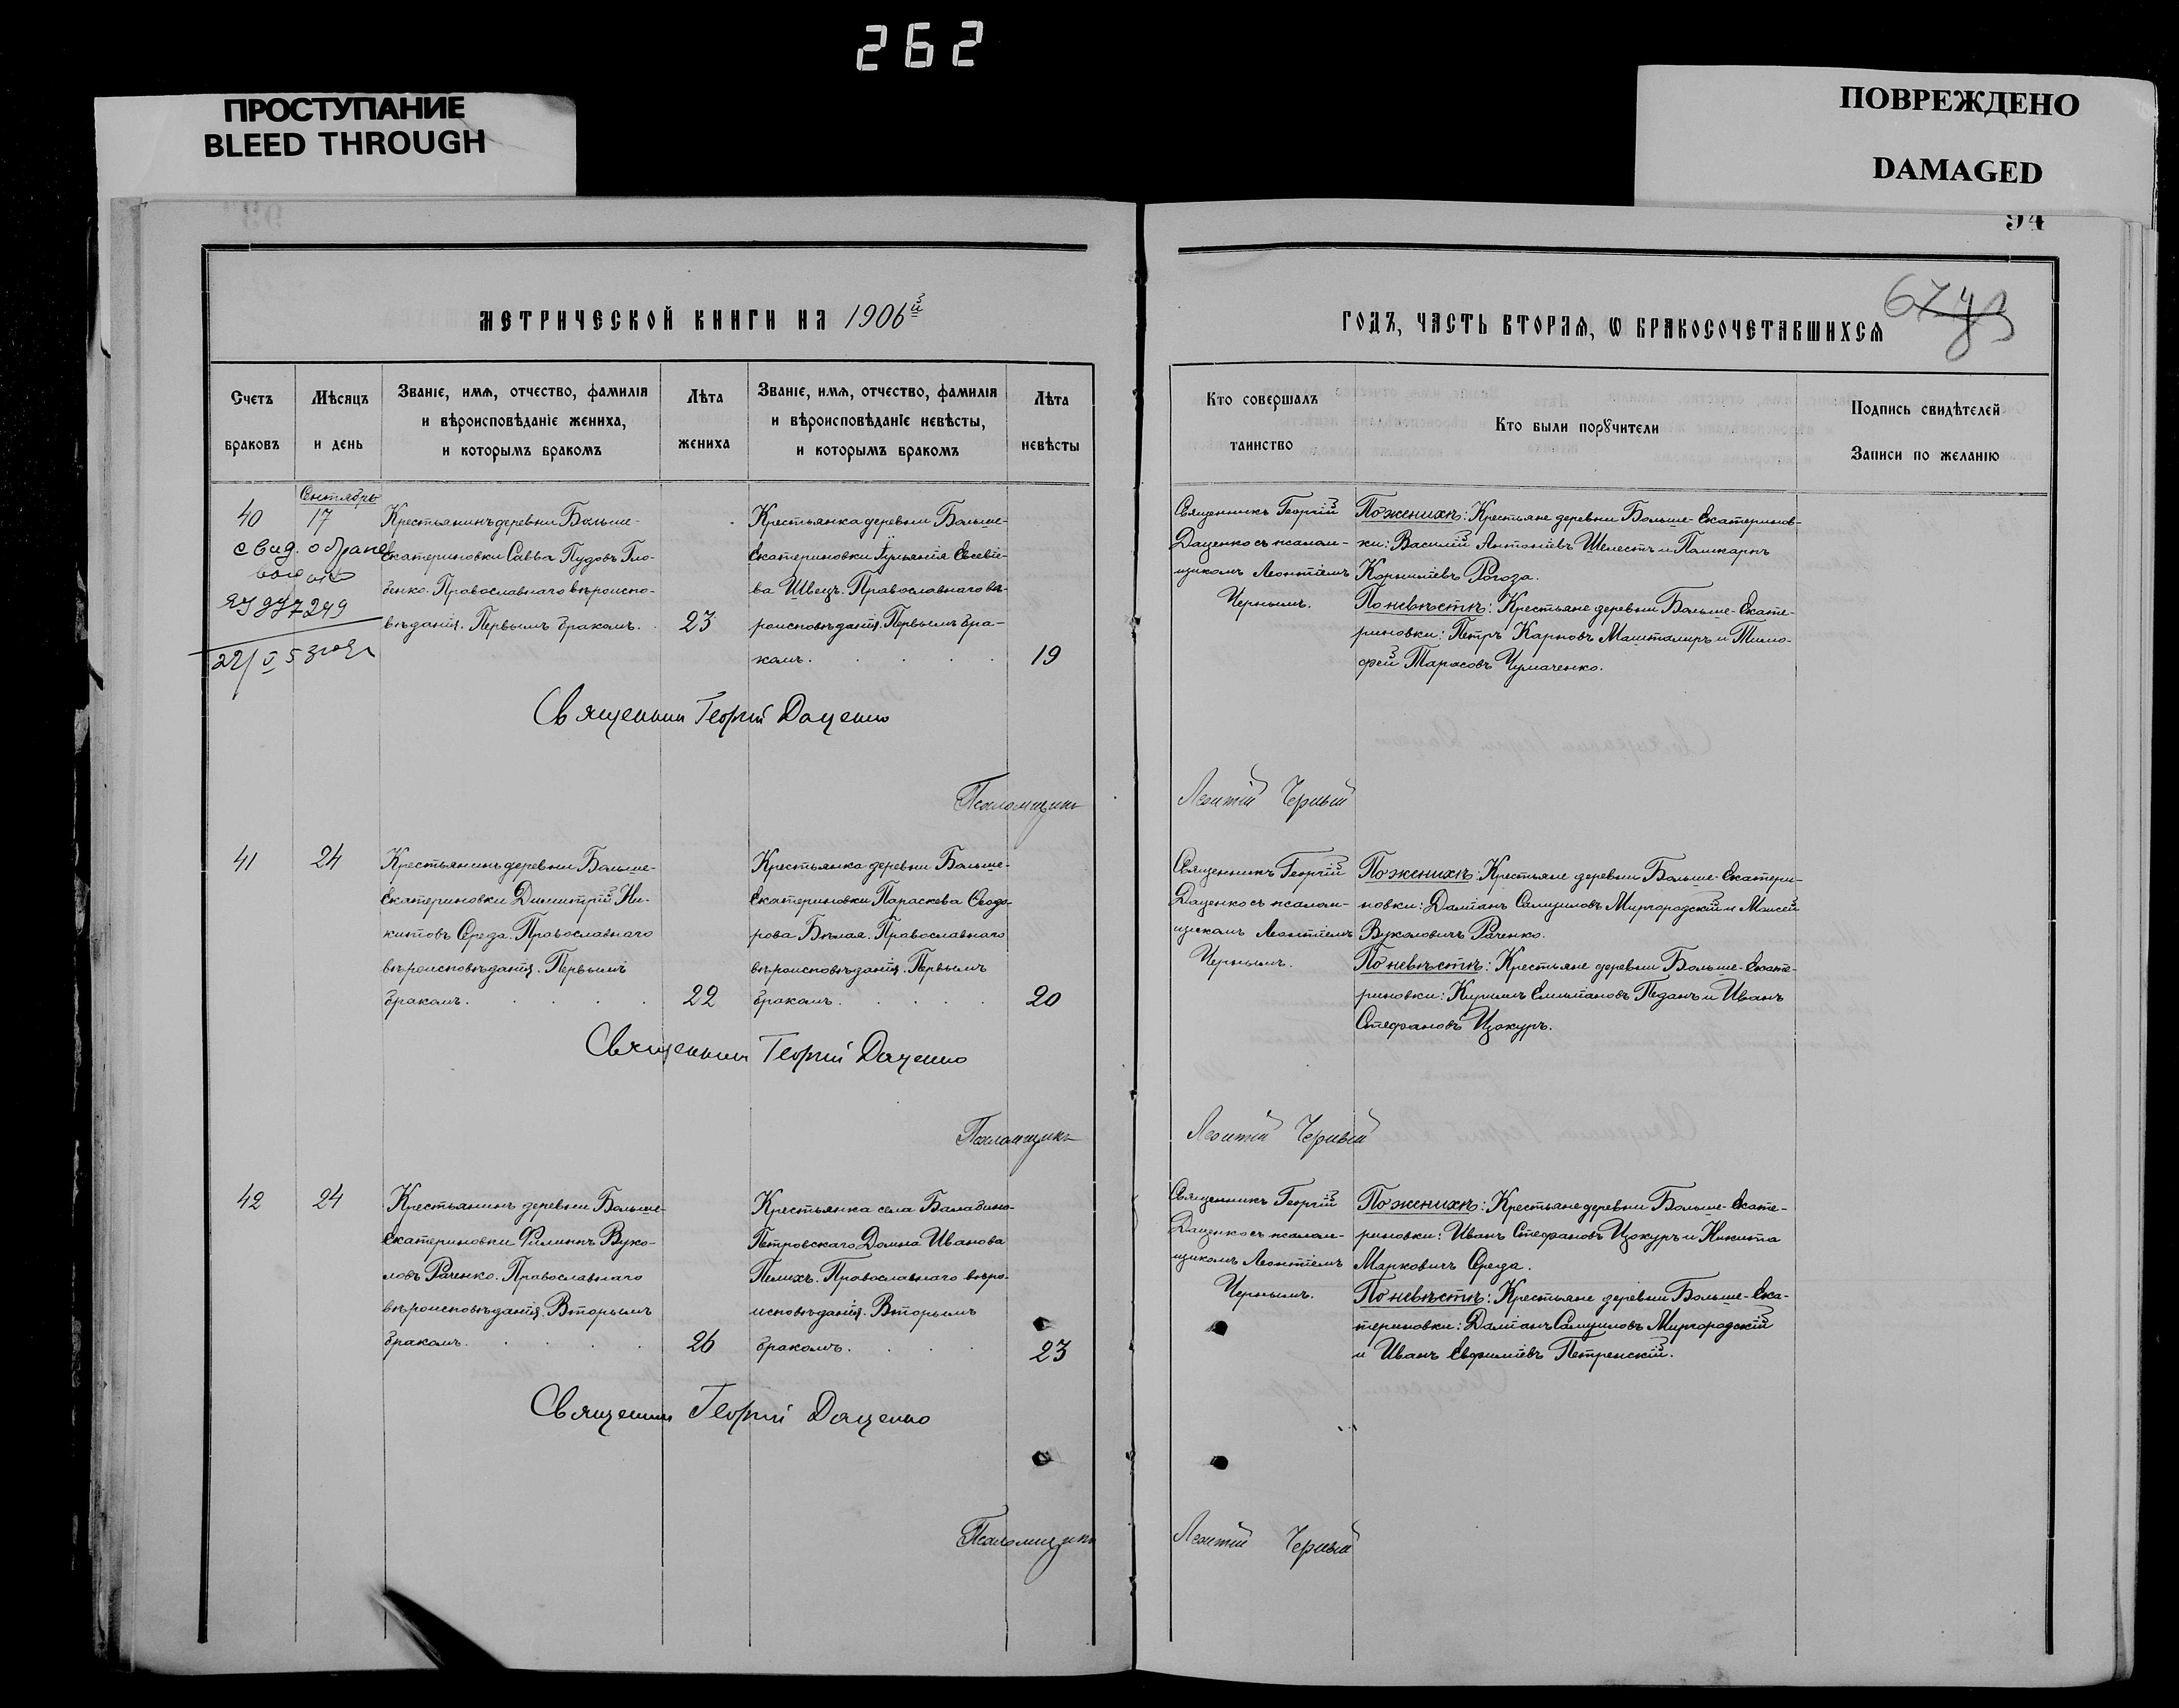 262
ПРОСТУПАНИЕ
BLEED THROUGH
ПОВРЕЖДЕНО
DAMAGED
94
МЕТРИЧЕСКОЙ КНИГИ НА 1906й
ГОДЪ, ЧАСТЬ ВТОРАЯ, Ѡ БРАКОСОЧЕТАВШИХСЯ
Счетъ
браковъ
Мѣсяцъ
и день
Званіе, имя, отчество, фамилія
и вѣроисповѣданіе жениха,
и которымъ бракомъ
Лѣта
жениха
Званіе, имя, отчество, фамилія
и вѣроисповѣданіе невѣсты,
и которымъ бракомъ
Лѣта
невѣсты
Кто совершалъ
таинство
Кто были порꙋчители
Подпись свидѣтелей
Записи по желанію
Сентябрь
40
17
свид. о браке
Крестьянинъ деревни Больше-
Екатериновки Савва Пудовъ Гло-
бенко. Православнаго вѣроиспо-
вѣданія. Первымъ бракомъ.
23
Крестьянка деревни Больше-
Екатериновки Евсевіе-
ва Швецъ. Православнаго вѣ-
роисповѣданія. Первымъ бра-
комъ.
19
Священникъ Георгій
Даценко съ псалом-
щикомъ Леонтіемъ
Чернымъ.
По женихѣ: Крестьяне деревни Больше-Екатеринов-
ки: Василій Антоніевъ Шелестъ и Поликарпъ
Корниліевъ Рогоза.
По невѣстѣ: Крестьяне деревни Больше-Екате-
риновки: Петръ Карповъ Машталиръ и Тимо-
фей Тарасовъ Чумаченко.
Священник Георгій Даценко
Псаломщикъ Леонтій Черный
41
24
Крестьянинъ деревни Больше-
Екатериновки Димитрій Ни-
китовъ Середа. Православнаго
вѣроисповѣданія. Первымъ
бракомъ.
22
Крестьянка деревни Больше-
Екатериновки Параскева Ѳеодо-
рова Бѣлая. Православнаго
вѣроисповѣданія. Первымъ
бракомъ.
20
Священникъ Георгій
Даценко съ псалом-
щикомъ Леонтіемъ
Чернымъ.
По женихѣ: Крестьяне деревни Больше-Екатери-
новки: Даміанъ Самуиловъ Миргородскій и Моисей
Вуколовичъ Раченко.
По невѣстѣ: Крестьяне деревни Больше-Екате-
риновки: Кириллъ Емиліановъ Педанъ и Иванъ
Стефановъ Цокуръ.
Священник Георгій Даценко
Псаломщикъ Леонтій Черный
42
24
Крестьянинъ деревни Больше-
Екатериновки Филиппъ Вуко-
ловъ Раченко. Православнаго
вѣроисповѣданія. Вторымъ
бракомъ.
26
Крестьянка села Балабино-
Петровскаго Домна Иванова
Пелихъ. Православнаго вѣро-
исповѣданія. Вторымъ
бракомъ.
23
Священникъ Георгій
Даценко съ псалом-
щикомъ Леонтіемъ
Чернымъ.
По женихѣ: Крестьяне деревни Больше-Екате-
риновки: Иванъ Стефановъ Цокуръ и Никита
Марковичъ Середа.
По невѣстѣ: Крестьяне деревни Больше-Ека-
териновки: Даміанъ Самуиловъ Миргородскій
и Иванъ Евфиміевъ Петренскій.
Священник Георгій Даценко
Псаломщикъ Леонтій Черный